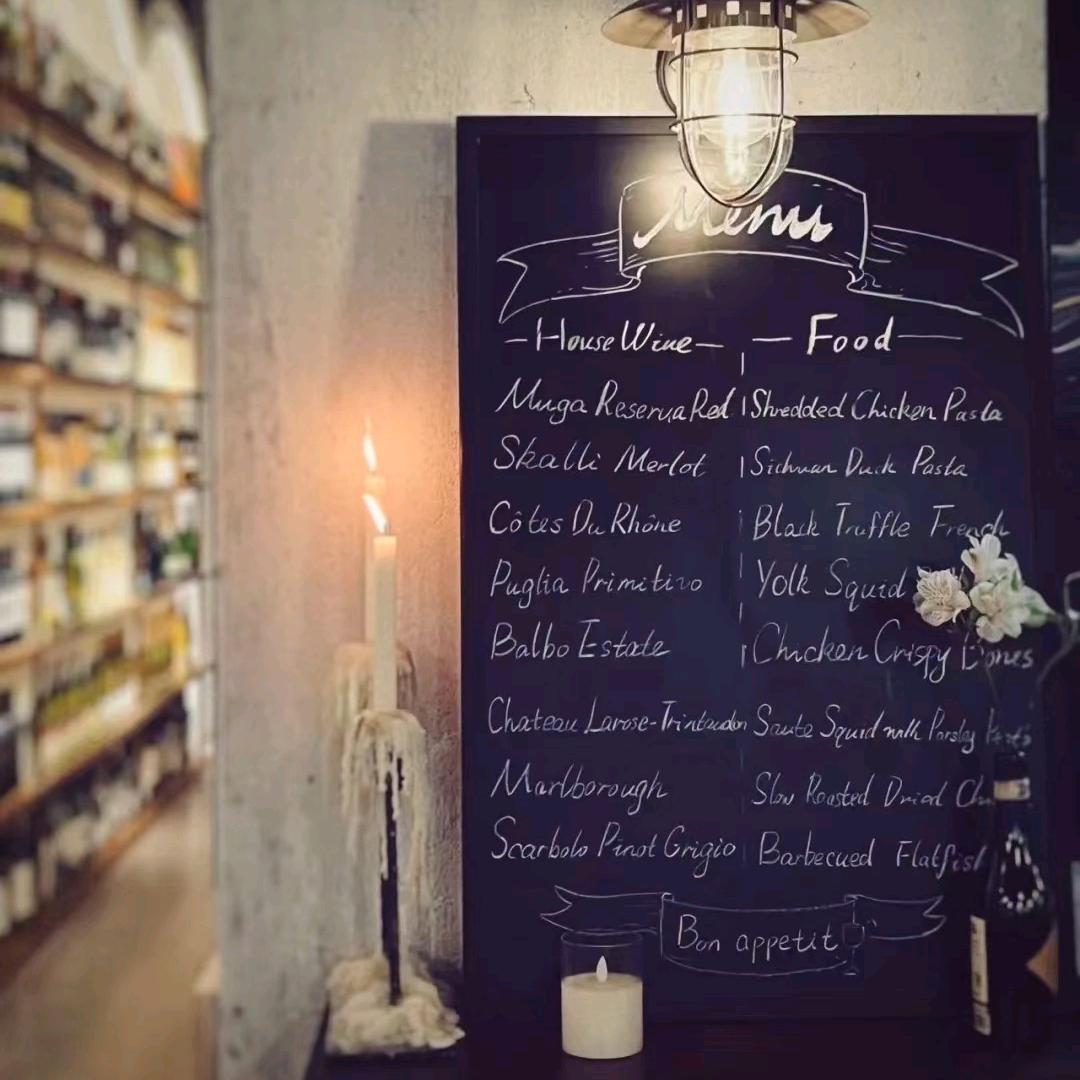 Menu
House Wine
Muga Reserva Red
Skalli Merlot
Côtes Du Rhône
Puglia Primitivo
Balbo Estate
Chateau Larose-Trintaudon
Marlborough
Scarbolo Pinot Grigio
Food
Shredded Chicken Pasta
Sichuan Duck Pasta
Black Truffle French
Yolk Squid
Chicken Crispy Bones
Saute Squid with Parsley
Slow Roasted Dried
Barbecued Flatfish
Bon appetit